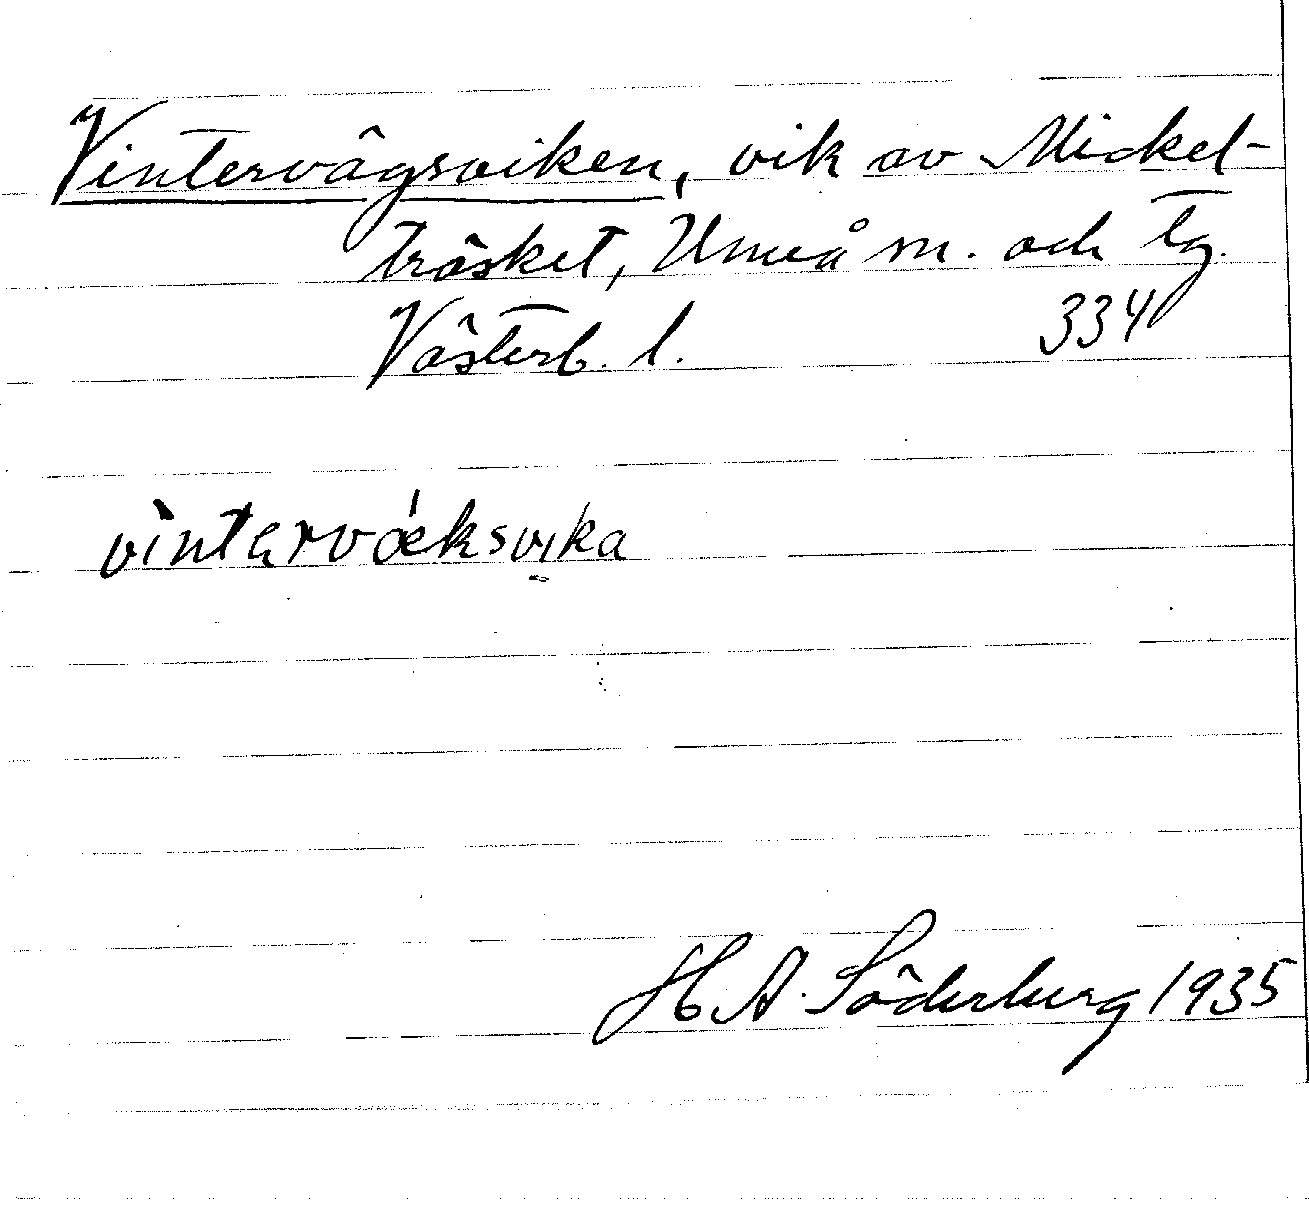 Vintervägsviken, vik av Mickel-
träsket, Umeå sn. och tg.
Västerb. l. 334
vìntərvǽksvika
H. A. Söderberg 1935